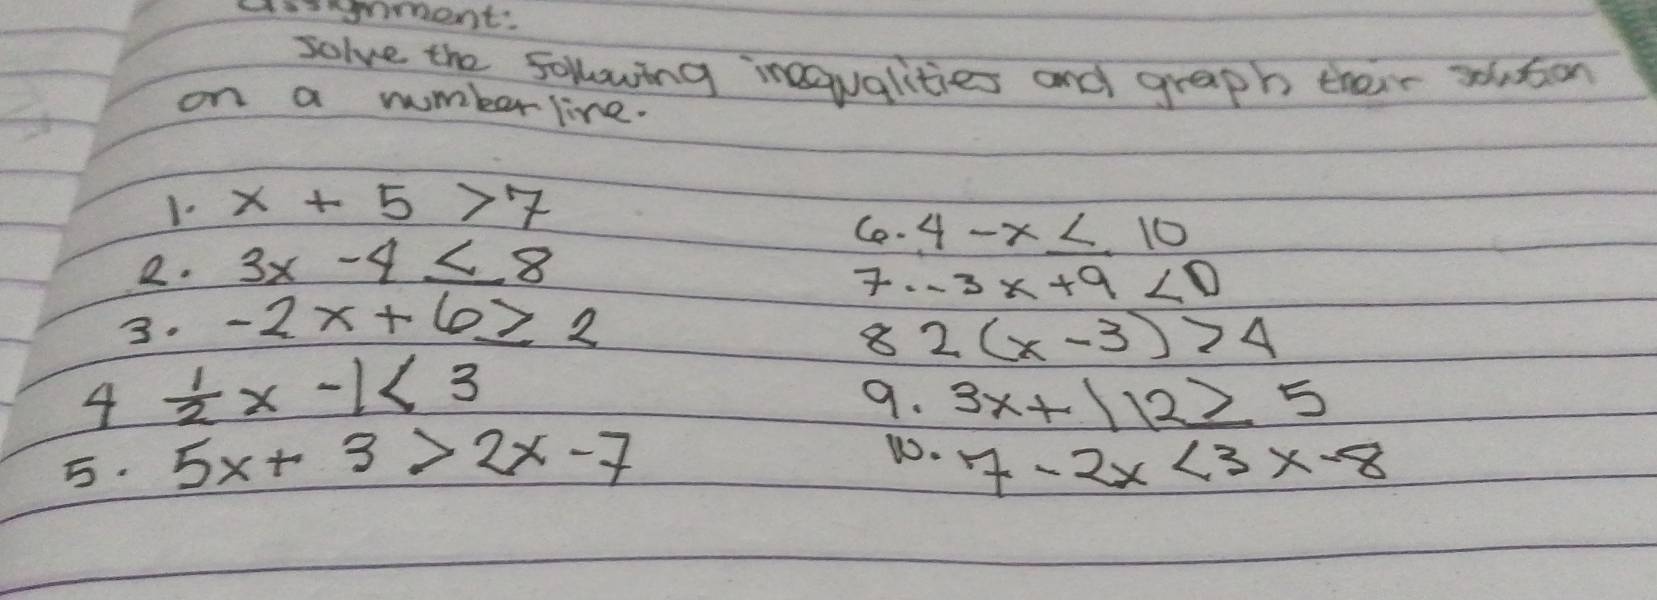 assignment:
Solve the following inequalities and graph their solution
on a number line.
1. x + 5 > 7
2. 3x - 4 ≤ 8
3. -2x + 6 ≥ 2
4 1/2 x - 1 < 3
5. 5x + 3 > 2x - 7
6. 4 - x ≤ 10
7. -3x + 9 < 0
8 2(x - 3) > 4
9. 3x + 112 ≥ 5
10. 7 - 2x < 3x - 8